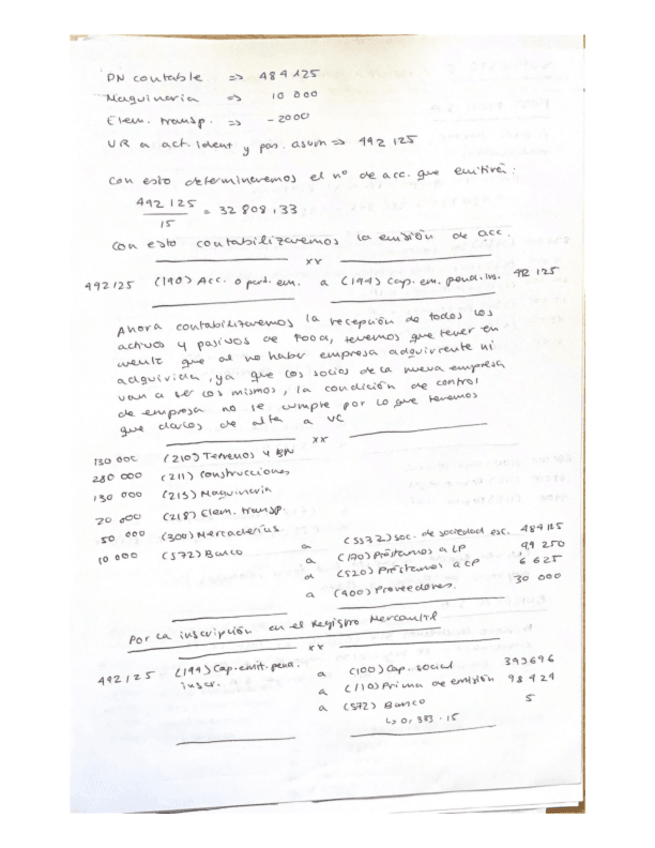 PN contable => 484125
Maquinaria => 10 000
Elem. transp. => -2000
VR a act. Ident y pas. asum => 492 125
Con esto determinaremos el nº de acc. que emitirá:
492 125 / 15 = 32 808,33
Con esto contabilizaremos la emisión de acc.
xx
492125 (190) Acc. o part. em. a (194) Cap. em. pend. ins. 492 125
Ahora contabilizaremos la recepción de todos los
activos y pasivos de tenemos que tener en
que al no haber empresa adquirente ni
adquirida, ya que los socios de la nueva empresa
van a ser los mismos, la condición de control
de empresa no se cumple por lo que tenemos
que darlos de alta a VC
xx
130 000 (210) Terrenos y BN
280 000 (211) Construcciones
130 000 (213) Maquinaria
20 000 (218) Elem. transp
50 000 (300) Mercaderías
10 000 (572) Banco a (5532) soc. de sociedad esc. 484125
a (170) Préstamos a LP 99 250
a (520) Préstamos a CP 6 625
a (400) Proveedores. 30 000
Por la inscripción en el Registro Mercantil
xx
492125 (194) Cap. emit. pend. inscr. a (100) Cap. social 393696
a (110) Prima de emisión 98 424
a (572) Banco 5
↳ 0,333 · 15